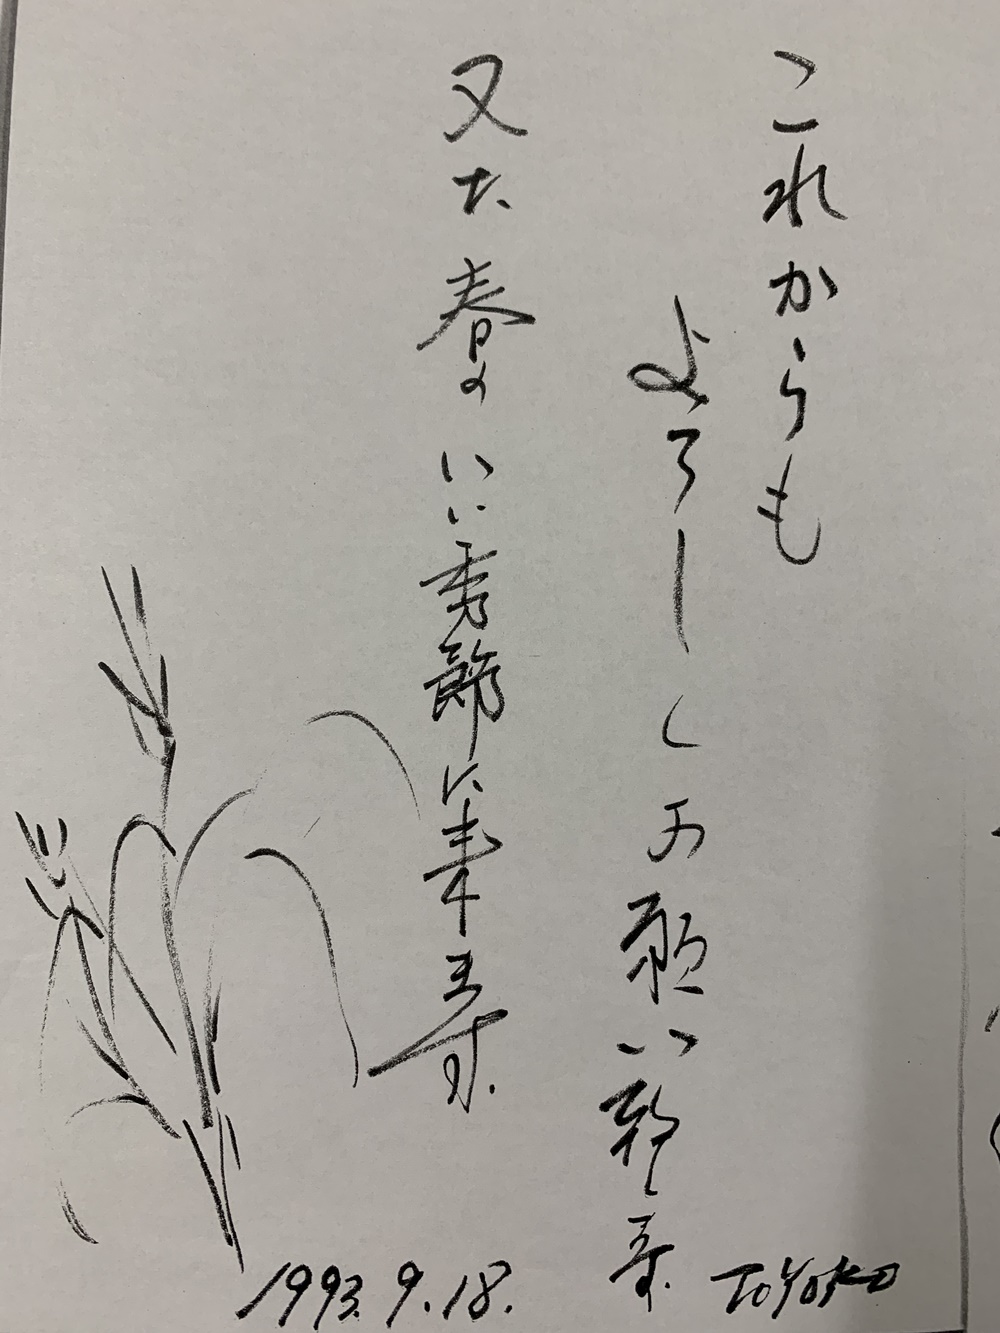 これからも
よろしくお願い致します
又た春のいい季節に来ます。
1993.9.18.
TOYOKO